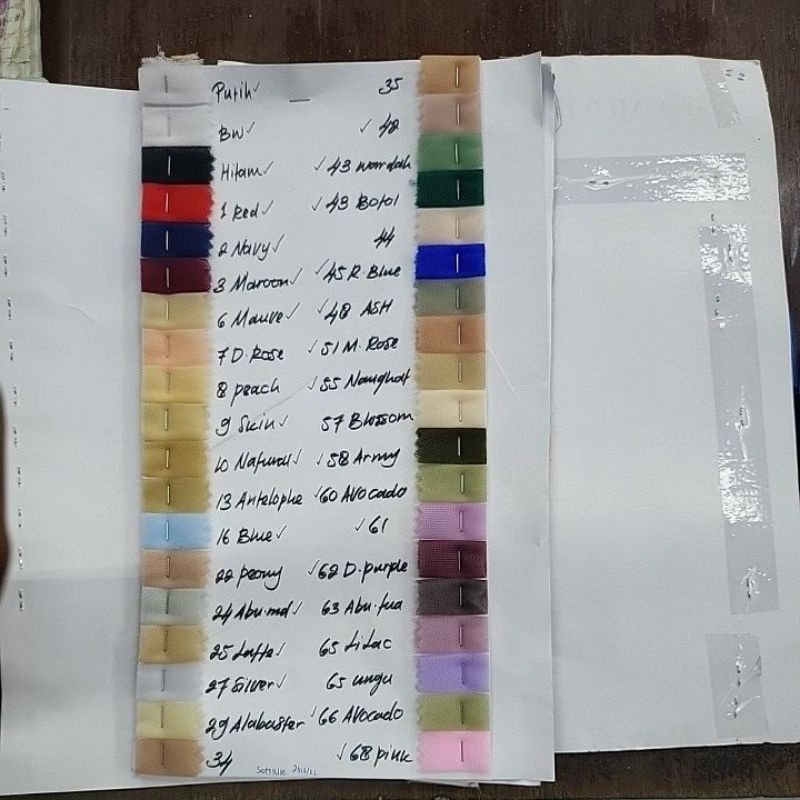 Putih✓ 35
BW✓ ✓ 42
Hitam✓ ✓ 43 Wardah
1 Red✓ ✓ 43 Botol
2 Navy✓ 44
3 Maroon✓ ✓ 45 R. Blue
6 Mauve✓ ✓ 48 ASH
7 D. Rose ✓ 51 M. Rose
8 peach ✓ 55 Noughat
9 Skin✓ 57 Blossom
10 Natural✓ ✓ 58 Army
13 Antelophe ✓ 60 Avocado
16 Blue✓ ✓ 61
22 Peony ✓ 62 D. purple
24 Abu.md✓ 63 Abu.tua
25 Latte✓ 65 Lilac
27 Silver✓ 65 ungu
29 Alabaster ✓ 66 Avocado
34 ✓ 68 pink